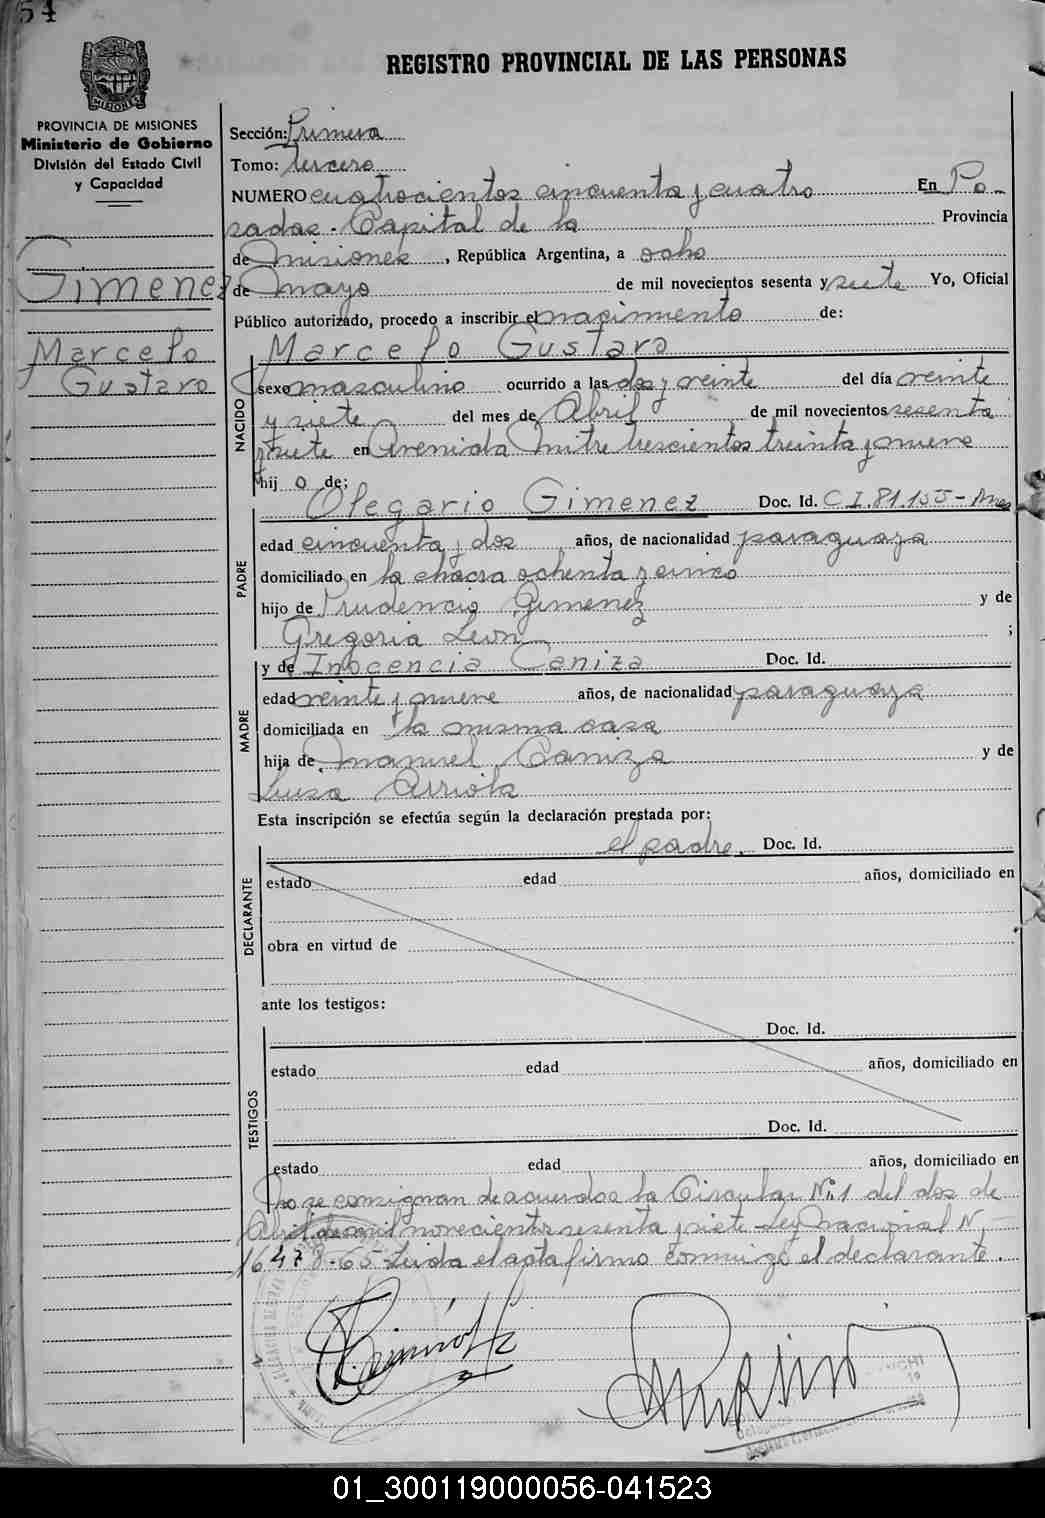 54
REGISTRO PROVINCIAL DE LAS PERSONAS
MISIONES
PROVINCIA DE MISIONES
Ministerio de Gobierno
División del Estado Civil
y Capacidad
Gimenez
Marcelo
Gustavo
Sección: Primera
Tomo: tercero
NUMERO cuatrocientos cincuenta y cuatro En Po-
sadas - Capital de la Provincia
de Misiones, República Argentina, a ocho
de mayo de mil novecientos sesenta y siete Yo, Oficial
Público autorizado, procedo a inscribir el nacimiento de:
Marcelo Gustavo
NACIDO
sexo masculino ocurrido a las dos y veinte del día veinte
y siete del mes de Abril de mil novecientos sesenta
y siete en Avenida Mitre trescientos treinta y nueve
hij o de:
Olegario Gimenez Doc. Id. C.I. 81.155 - Mnes
PADRE
edad cincuenta y dos años, de nacionalidad paraguaya
domiciliado en la chacra ochenta y cinco
hijo de Prudencio Gimenez y de
Gregoria Leon ;
y de Inocencia Caniza Doc. Id.
MADRE
edad veinte y nueve años, de nacionalidad paraguaya
domiciliada en la misma casa
hija de Manuel Caniza y de
Luisa Arriola
Esta inscripción se efectúa según la declaración prestada por:
el padre. Doc. Id.
DECLARANTE
estado edad años, domiciliado en
obra en virtud de
ante los testigos:
Doc. Id.
TESTIGOS
estado edad años, domiciliado en
Doc. Id.
estado edad años, domiciliado en
no se consignan de acuerdo a la Circular Nº 1 del dos de
Abril de mil novecientos sesenta y siete - Ley Nacional N.-
16478-65 - Leida el acta firmo conmigo el declarante.
01_300119000056-041523